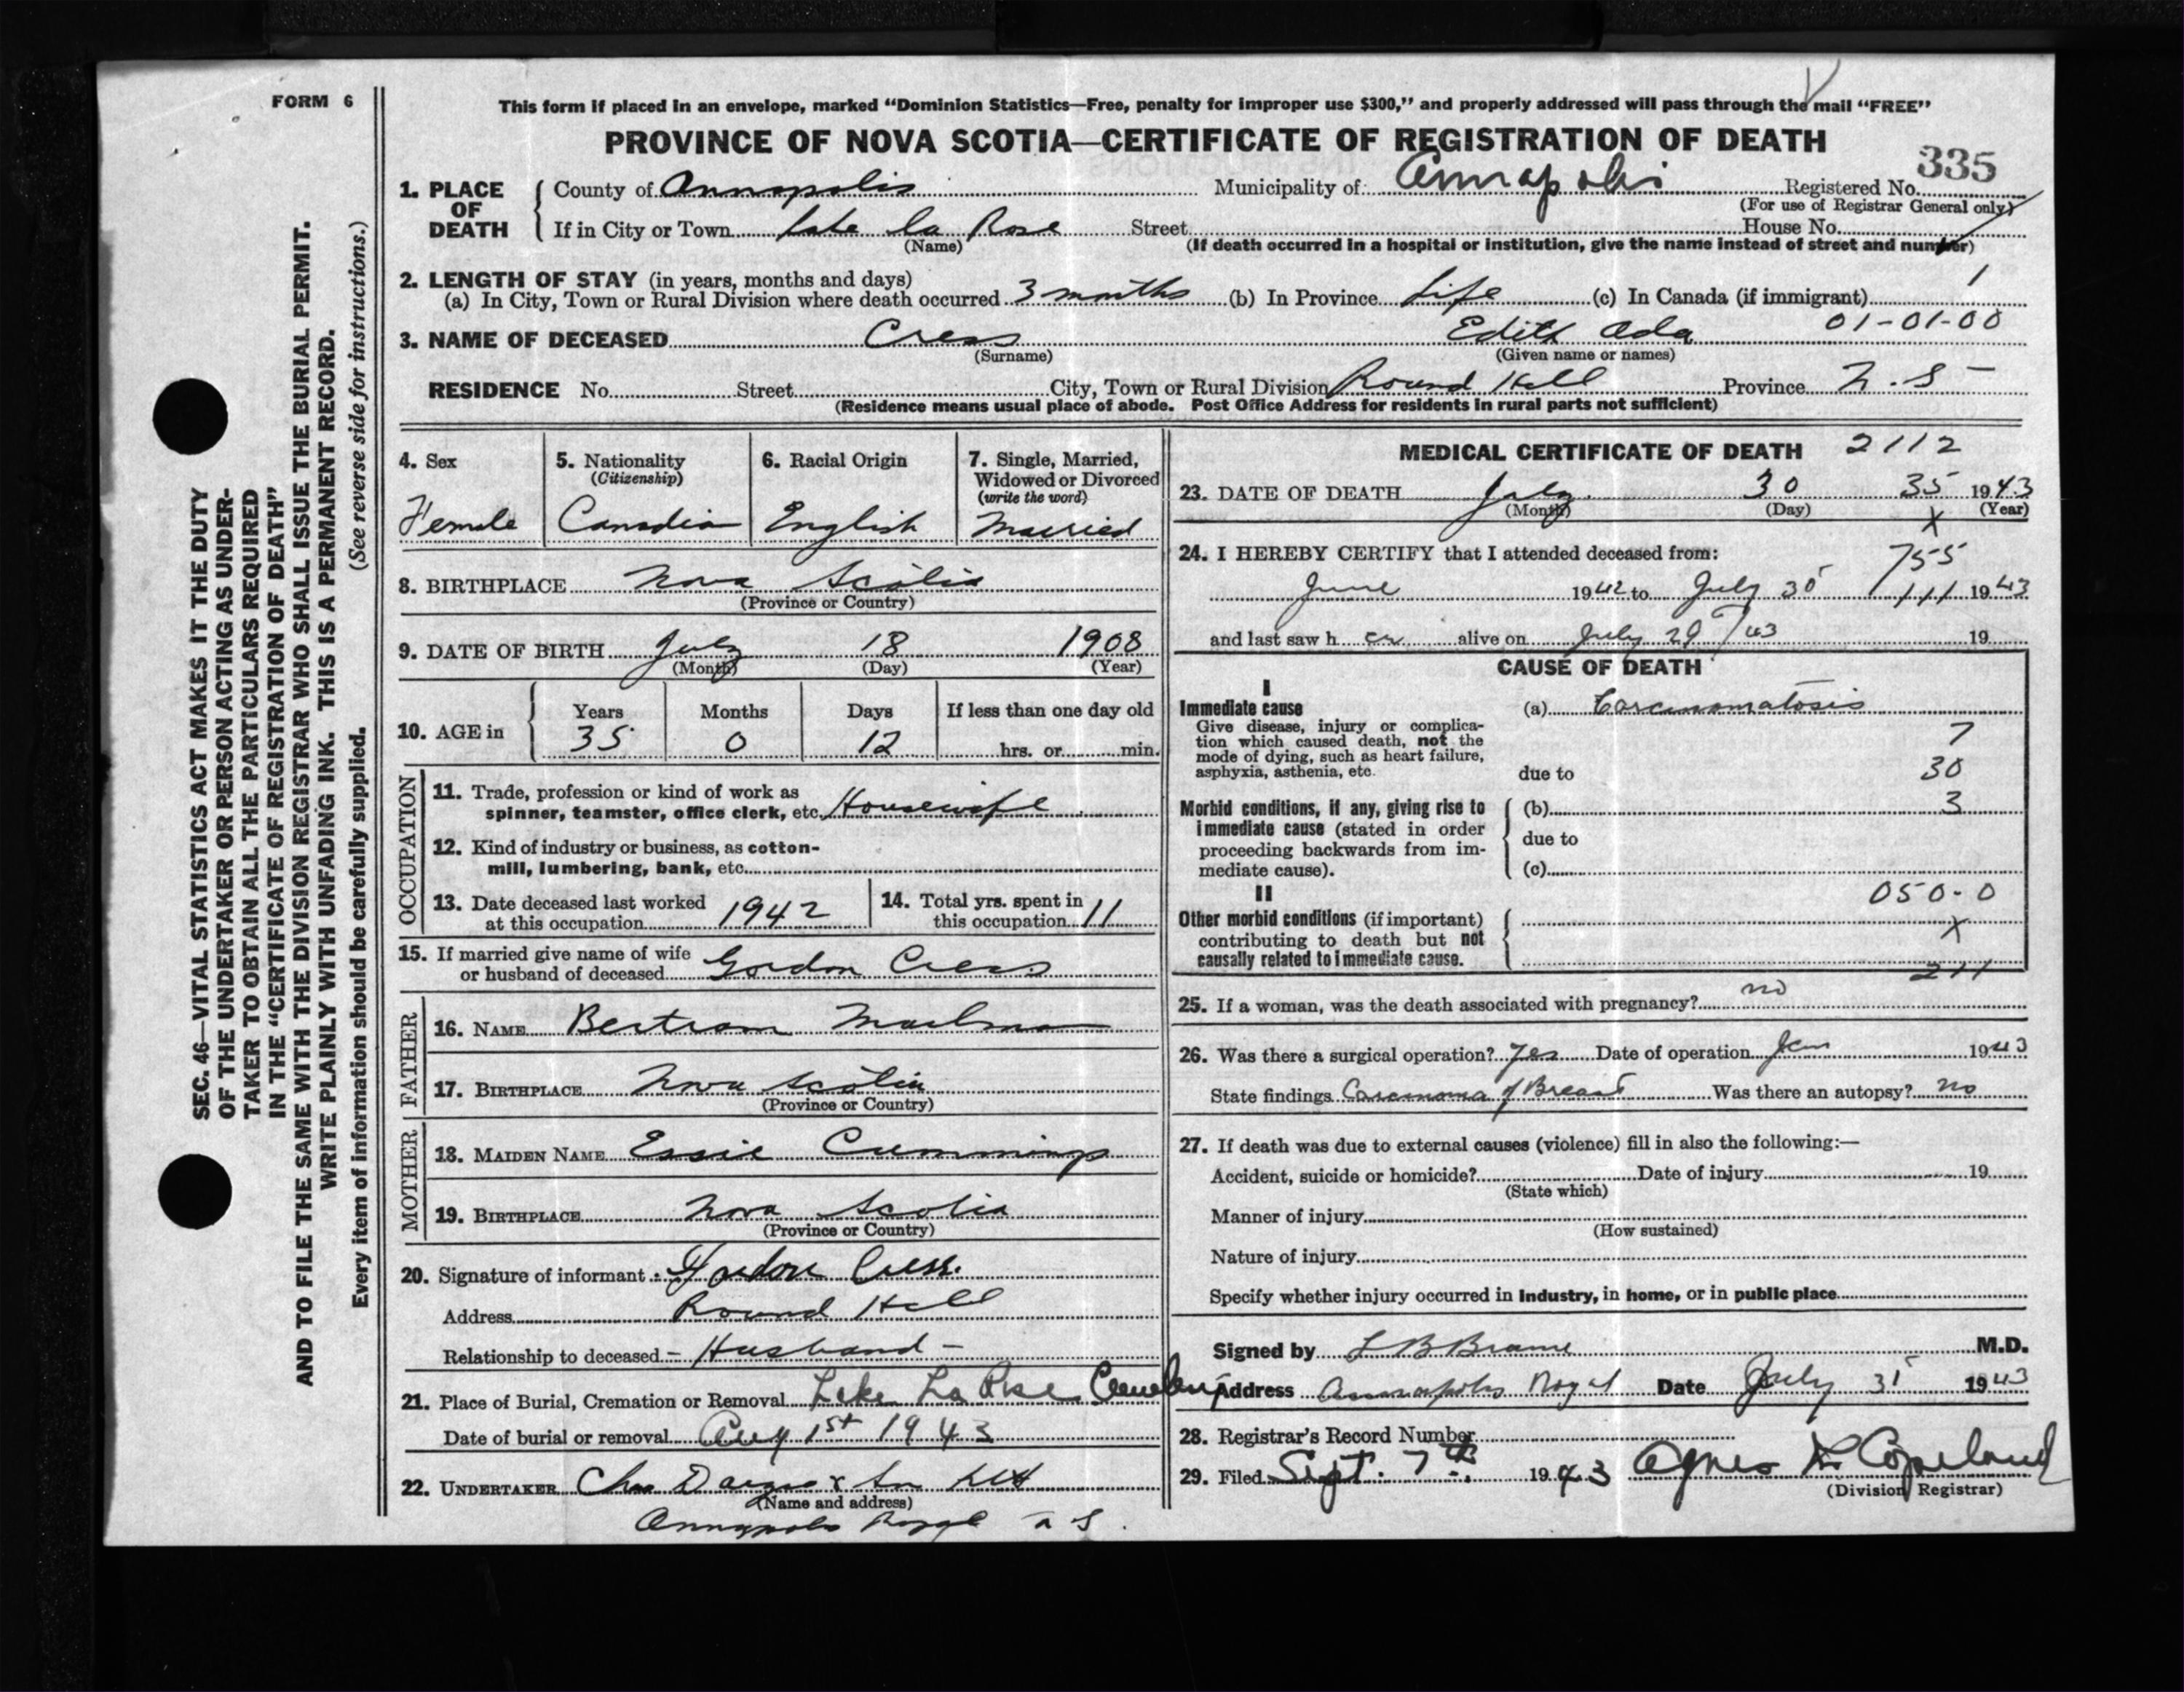 FORM 6
This form if placed in an envelope, marked “Dominion Statistics—Free, penalty for improper use $300,” and properly addressed will pass through the mail “FREE”
PROVINCE OF NOVA SCOTIA—CERTIFICATE OF REGISTRATION OF DEATH
335
1. PLACE OF DEATH County of Annapolis Municipality of Annapolis Registered No.
(For use of Registrar General only)
If in City or Town Lake La Rose Street House No.
(Name) (If death occurred in a hospital or institution, give the name instead of street and number)
2. LENGTH OF STAY (in years, months and days) 1
(a) In City, Town or Rural Division where death occurred 3 months (b) In Province Life (c) In Canada (if immigrant)
01-01-00
3. NAME OF DECEASED Cress Edith Ada
(Surname) (Given name or names)
RESIDENCE No. Street City, Town or Rural Division Round Hill Province N.S
(Residence means usual place of abode. Post Office Address for residents in rural parts not sufficient)
4. Sex 5. Nationality 6. Racial Origin 7. Single, Married,
(Citizenship) Widowed or Divorced
(write the word)
Female Canadian English Married
8. BIRTHPLACE Nova Scotia
(Province or Country)
9. DATE OF BIRTH July 18 1908
(Month) (Day) (Year)
Years Months Days If less than one day old
10. AGE in 35 0 12 hrs. or min.
OCCUPATION
11. Trade, profession or kind of work as
spinner, teamster, office clerk, etc. Housewife
12. Kind of industry or business, as cotton-
mill, lumbering, bank, etc.
13. Date deceased last worked 14. Total yrs. spent in
at this occupation 1942 this occupation 11
15. If married give name of wife
or husband of deceased Gordon Cress
FATHER
16. NAME Bertram Mailman
17. BIRTHPLACE Nova Scotia
(Province or Country)
MOTHER
18. MAIDEN NAME Essie Cummings
19. BIRTHPLACE Nova Scotia
(Province or Country)
20. Signature of informant Gordon Cress.
Address Round Hill
Relationship to deceased Husband
21. Place of Burial, Cremation or Removal Lake La Rose Cemetery
Date of burial or removal Aug 1st 1943
22. UNDERTAKER & Son
(Name and address)
Annapolis Royal N S.
MEDICAL CERTIFICATE OF DEATH 2112
23. DATE OF DEATH July 30 35 1943
(Month) (Day) (Year)
X
24. I HEREBY CERTIFY that I attended deceased from: 755
June 1942 to July 30 111 1943
and last saw her alive on July 29/43 19
CAUSE OF DEATH
I
Immediate cause (a) Carcinomatosis
Give disease, injury or complica-
tion which caused death, not the 7
mode of dying, such as heart failure,
asphyxia, asthenia, etc. due to 30
Morbid conditions, if any, giving rise to (b) 3
immediate cause (stated in order
proceeding backwards from im- due to
mediate cause). (c)
II 050-0
Other morbid conditions (if important)
contributing to death but not X
causally related to immediate cause.
211
25. If a woman, was the death associated with pregnancy? no
26. Was there a surgical operation? Yes Date of operation Jan 1943
State findings Carcinoma of Breast Was there an autopsy? no
27. If death was due to external causes (violence) fill in also the following:—
Accident, suicide or homicide? Date of injury 19
(State which)
Manner of injury
(How sustained)
Nature of injury
Specify whether injury occurred in industry, in home, or in public place
Signed by M.D.
Address Annapolis Royal Date July 31 1943
28. Registrar's Record Number
29. Filed Sept. 7th 1943 Agnes L Copeland
(Division Registrar)
SEC. 46—VITAL STATISTICS ACT MAKES IT THE DUTY
OF THE UNDERTAKER OR PERSON ACTING AS UNDER-
TAKER TO OBTAIN ALL THE PARTICULARS REQUIRED
IN THE “CERTIFICATE OF REGISTRATION OF DEATH”
AND TO FILE THE SAME WITH THE DIVISION REGISTRAR WHO SHALL ISSUE THE BURIAL PERMIT.
WRITE PLAINLY WITH UNFADING INK. THIS IS A PERMANENT RECORD.
Every item of information should be carefully supplied. (See reverse side for instructions.)